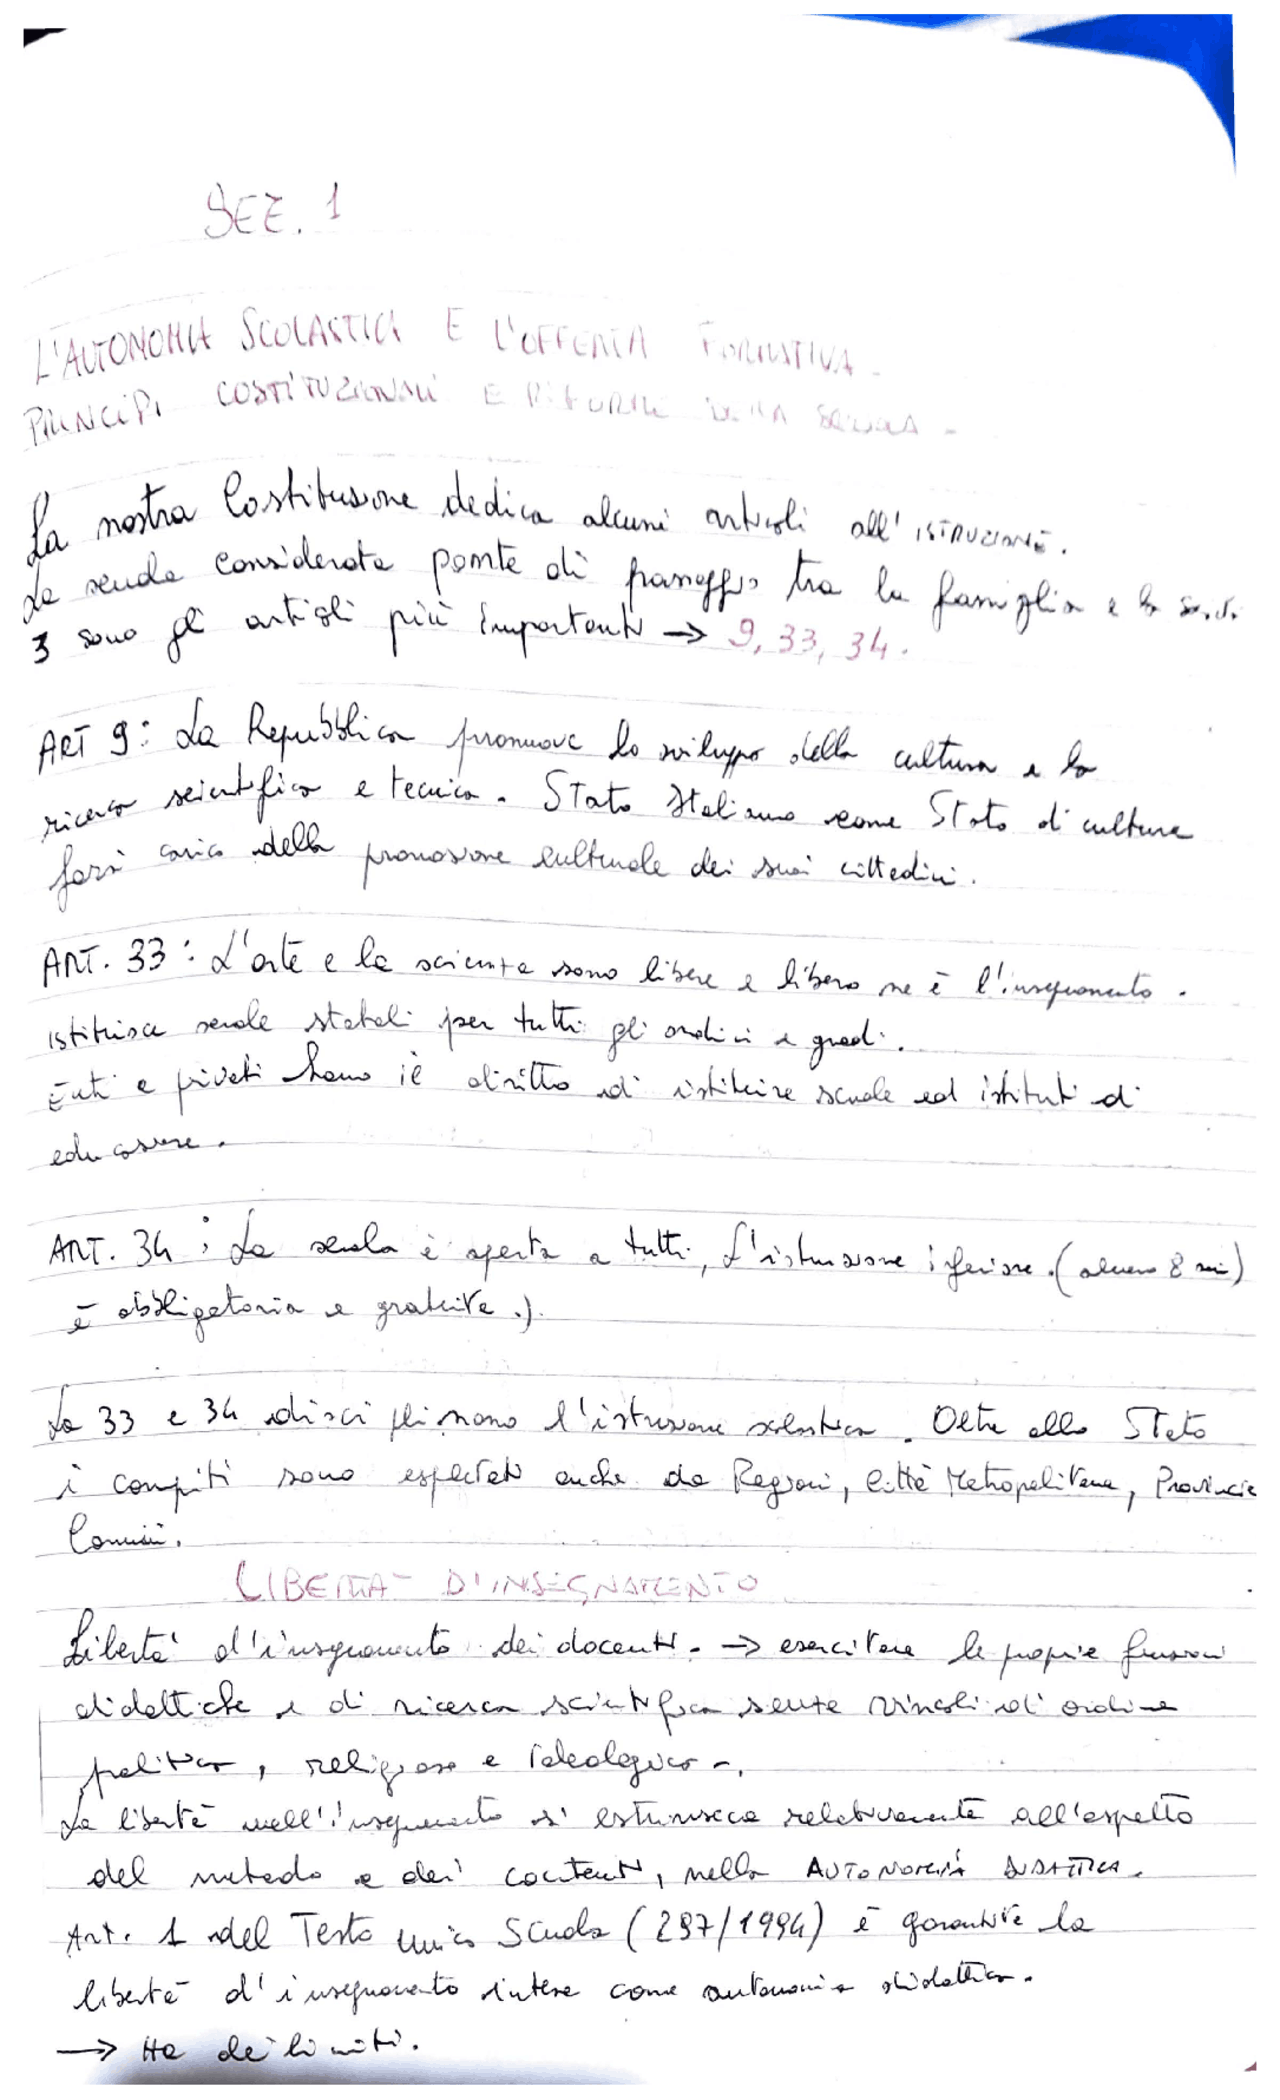 SEZ. 1
L'AUTONOMIA SCOLASTICA E L'OFFERTA FORMATIVA -
PRINCIPI COSTITUZIONALI E RIFORME DELLA SCUOLA -
La nostra Costituzione dedica alcuni articoli all'ISTRUZIONE.
La scuola considerata ponte di passaggio tra la famiglia e la
3 sono gli articoli più importanti → 9, 33, 34.
ART 9: La Repubblica promuove lo sviluppo della cultura e la
ricerca scientifica e tecnica. Stato Italiano come Stato di cultura
farsi carico della promozione culturale dei suoi cittadini.
ART. 33: L'arte e la scienza sono libere e libero ne è l'insegnamento.
istituisce scuole statali per tutti gli ordini e gradi.
Enti e privati hanno il diritto di istituire scuole ed istituti di
educazione.
ART. 34: La scuola è aperta a tutti, L'istruzione inferiore. (almeno 8 anni)
è obbligatoria e gratuita.).
La 33 e 34 disciplinano l'istruzione scolastica. Oltre allo Stato
i compiti sono espletati anche da Regioni, Città Metropolitane, Provincie
Comuni.
LIBERTA' D'INSEGNAMENTO
Libertà d'insegnamento dei docenti. → esercitare le proprie funzioni
didattiche e di ricerca scientifica senza vincoli di ordine
politico, religioso e ideologico -.
La libertà nell'insegnamento si estrinseca relativamente all'aspetto
del metodo e dei contenuti, nella AUTONOMIA DIDATTICA.
Art. 1 del Testo unico Scuola (297/1994) è garantita la
libertà d'insegnamento intesa come autonomia didattica.
→ Ha dei limiti.